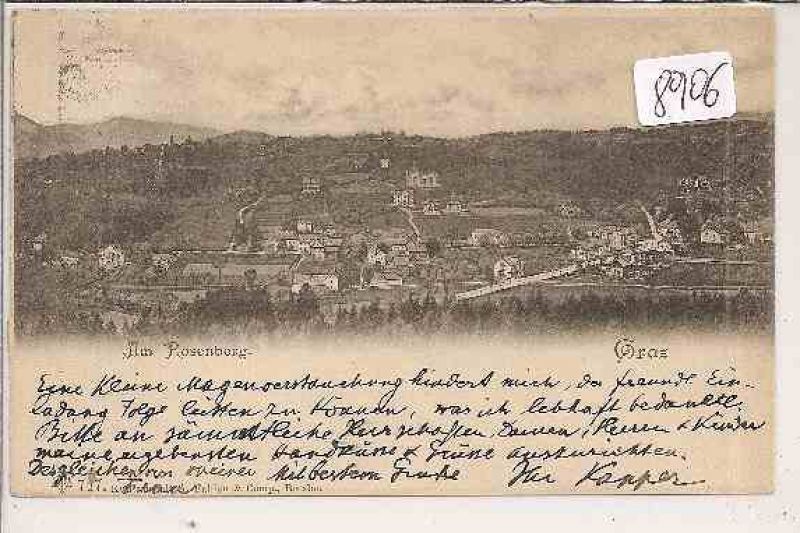 8906
Am Rosenberg.
Graz
Eine kleine Magenverstauchung hindert mich, der freundl. Ein-
ladung Folge leisten zu können, was ich lebhaft bedauere.
Bitte an sämmtliche Herrschaften, Damen, Herren & Kinder
meine ergebensten Handküsse & Grüsse auszurichten.
Dergleichen von meiner
Ihr Kapper
& Comp., Breslau